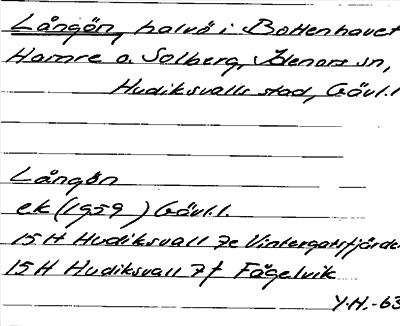 Långön, halvö i Bottenhavet
Hamre o. Solberg, Idenors sn,
Hudiksvalls stad, Gävl.l
Långön
ek (1959) Gävl.l.
15H Hudiksvall 7e Vintergatsfjärde
15H Hudiksvall 7f Fågelvik
Y.H.-63